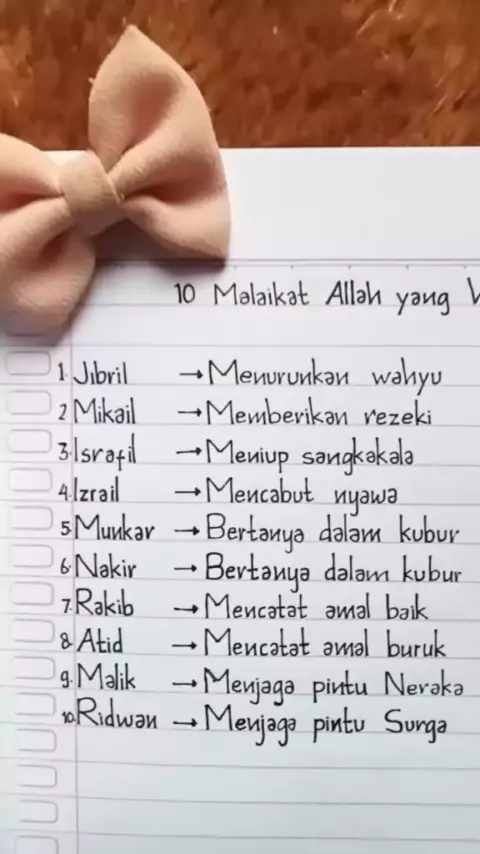 10 Malaikat Allah yang
1. Jibril → Menurunkan wahyu
2 Mikail → Memberikan rezeki
3. Israfil → Meniup sangkakala
4. Izrail → Mencabut nyawa
5 Munkar → Bertanya dalam kubur
6. Nakir → Bertanya dalam kubur
7. Rakib → Mencatat amal baik
8. Atid → Mencatat amal buruk
9. Malik → Menjaga pintu Neraka
10. Ridwan → Menjaga pintu Surga